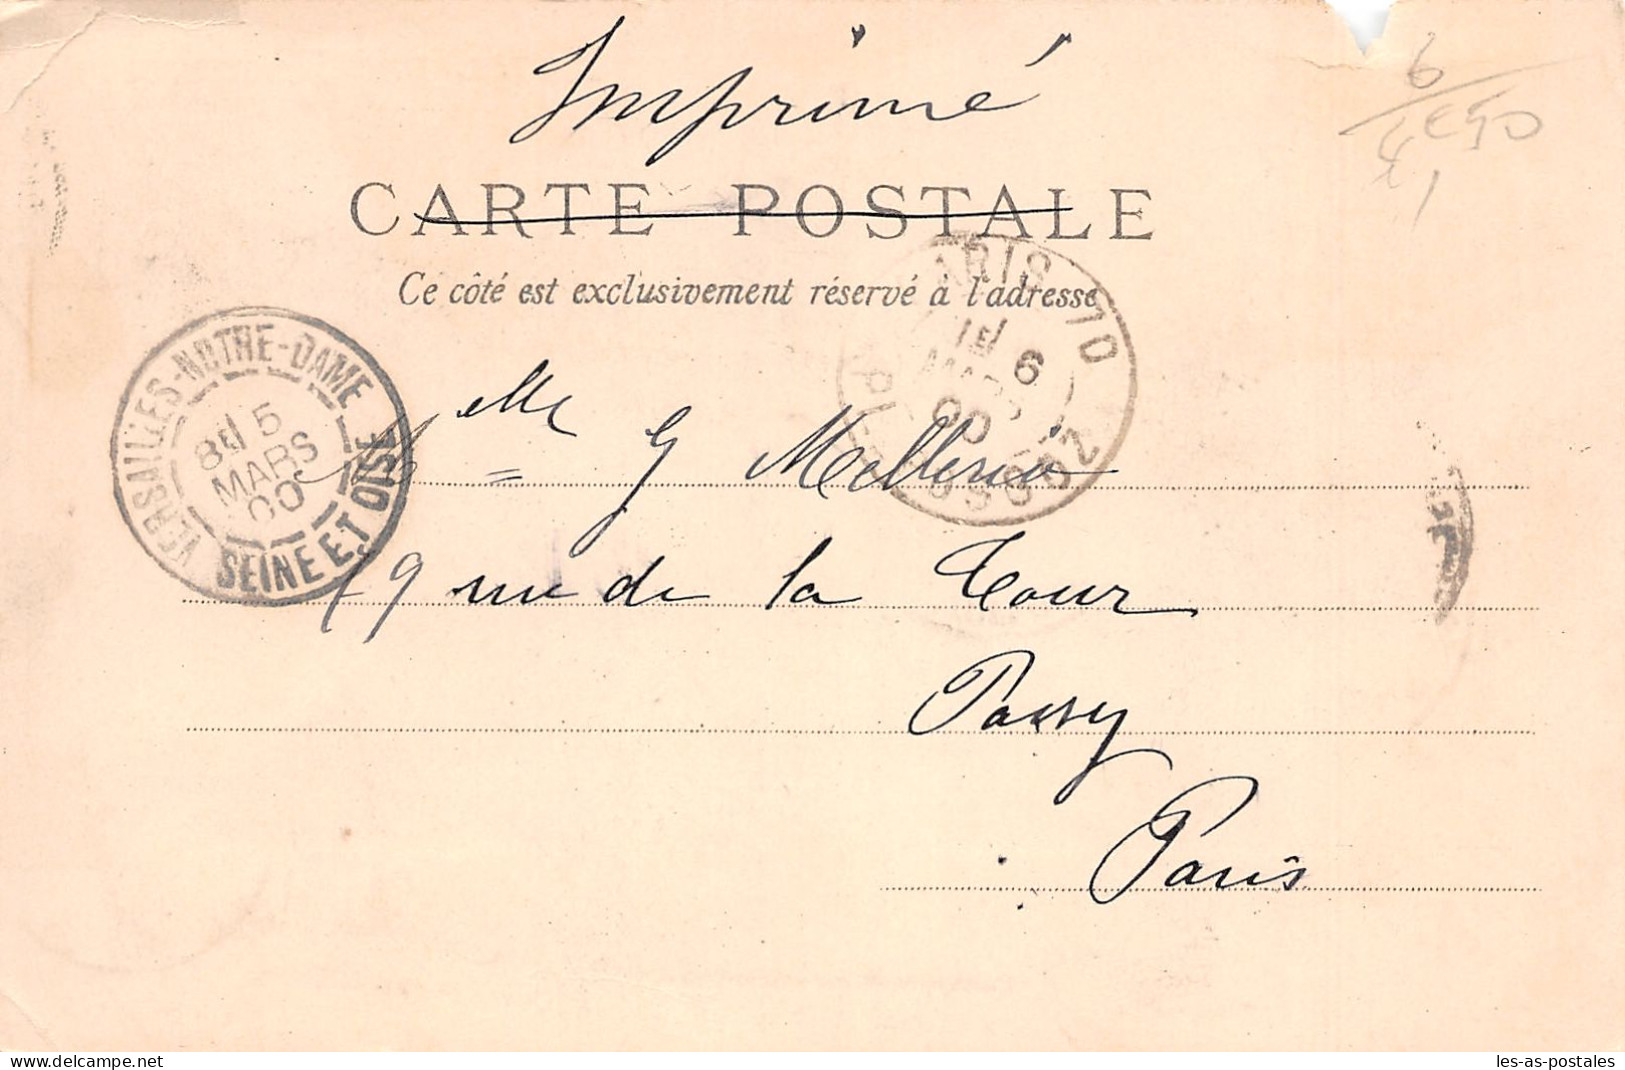 Imprimé
CARTE POSTALE
Ce côté est exclusivement réservé à l'adresse
VERSAILLES-NOTRE-DAME
8E 5
MARS
00
SEINE ET OISE
PARIS 70
1E 6
MARS
00
Mlle G Mellerio
19 rue de la Tour
Passy
Paris
6
€50
www.delcampe.net
les-as-postales